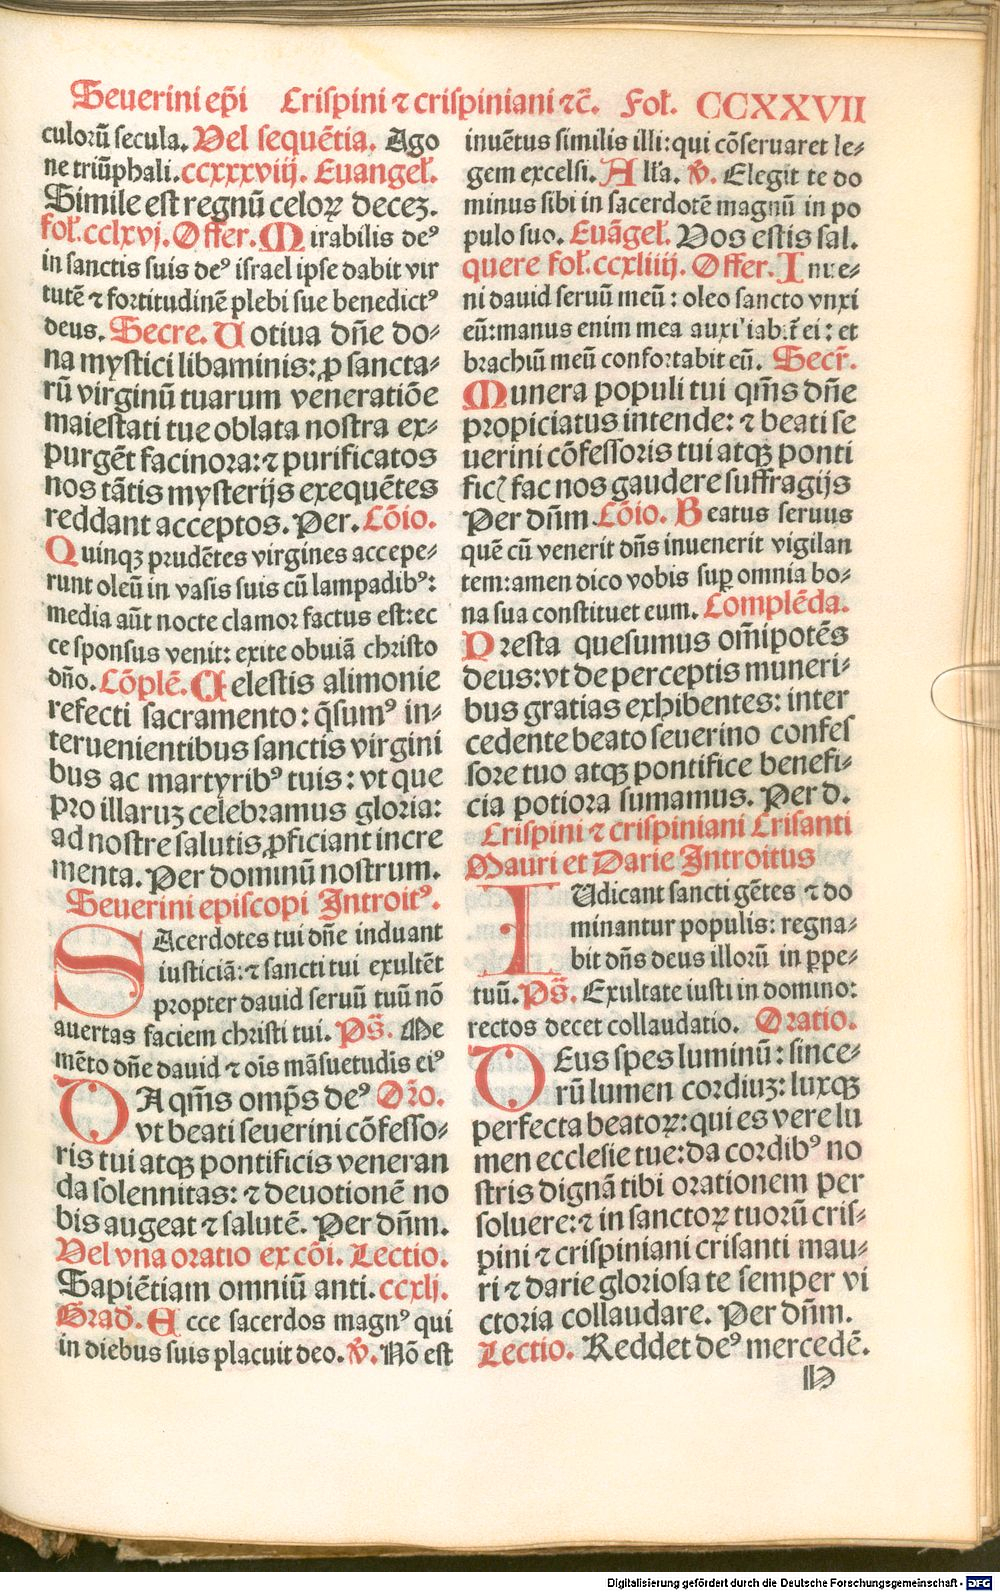 Seuerini ep̄i Crispini ⁊ crispiniani ⁊c̄. Fol. CCXXVII
culorū secula. Vel sequētia. Ago
ne triūphali. ccxxxviij. Euangel.
Simile est regnū celoꝝ decez.
fol. cclxvj. Offer. Mirabilis deꝰ
in sanctis suis deꝰ israel ipse dabit vir
tutē ⁊ fortitudinē plebi sue benedictꝰ
deus. Secre. Uotiua dn̄e do⸗
na mystici libaminis: ꝓ sancta⸗
rū virginū tuarum veneratiōe
maiestati tue oblata nostra ex⸗
purgēt facinora: ⁊ purificatos
nos tātis mysterijs exequētes
reddant acceptos. Per. Cōio.
Quinqꝫ prudētes virgines accepe⸗
runt oleū in vasis suis cū lampadibꝰ:
media aūt nocte clamor factus est: ec
ce sponsus venit: exite obuiā christo
dn̄o. Cōplē. Celestis alimonie
refecti sacramento: q̄sumꝰ in⸗
teruenientibus sanctis virgini
bus ac martyribꝰ tuis: vt que
pro illaruꝫ celebramus gloria:
ad nostre salutis ꝓficiant incre
menta. Per dominū nostrum.
Seuerini episcopi Introitꝰ.
SAcerdotes tui dn̄e induant
iusticiā: ⁊ sancti tui exultēt
propter dauid seruū tuū nō
auertas faciem christi tui. Ps̄. Me
mēto dn̄e dauid ⁊ oīs māsuetudīs eiꝰ
DA qm̄s omp̄s deꝰ Oro.
vt beati seuerini cōfesso⸗
ris tui atqꝫ pontificis veneran
da solennitas: ⁊ deuotionē no
bis augeat ⁊ salutē. Per dn̄m.
Vel vna oratio ex cōi. Lectio.
Sapiētiam omniū anti. ccxlj.
Grad. Ecce sacerdos magnꝰ qui
in diebus suis placuit deo. ℣. Nō est
inuētus similis illi: qui cōseruaret le⸗
gem excelsi. Alla. ℣. Elegit te do
minus sibi in sacerdotē magnū in po
pulo suo. Euāgel. Vos estis sal.
quere fol. ccxliiij. Offer. Inue⸗
ni dauid seruū meū: oleo sancto vnxi
eū: manus enim mea auxiliabit̄ ei: et
brachiū meū confortabit eū. Secr̄.
Munera populi tui qm̄s dn̄e
propiciatus intende: ⁊ beati se
uerini cōfessoris tui atqꝫ ponti
fic̄ fac nos gaudere suffragijs
Per dn̄m. Cōio. Beatus seruus
quē cū venerit dn̄s inuenerit vigilan
tem: amen dico vobis suꝑ omnia bo⸗
na sua constituet eum. Complēda.
Presta quesumus om̄ipotēs
deus: vt de perceptis muneri⸗
bus gratias exhibentes: inter
cedente beato seuerino confes
sore tuo atqꝫ pontifice benefi⸗
cia potiora sumamus. Per d.
Crispini ⁊ crispiniani Crisanti
Mauri et Darie Introitus
IUdicant sancti gētes ⁊ do
minantur populis: regna⸗
bit dn̄s deus illorū in ꝑpe⸗
tuū. Ps̄. Exultate iusti in domino:
rectos decet collaudatio. Oratio.
DEus spes luminū: since⸗
rū lumen cordiuꝫ: luxqꝫ
perfecta beatoꝝ: qui es vere lu
men ecclesie tue: da cordibꝰ no
stris dignā tibi orationem per
soluere: ⁊ in sanctoꝝ tuorū cris⸗
pini ⁊ crispiniani crisanti mau⸗
ri ⁊ darie gloriosa te semper vi
ctoria collaudare. Per dn̄m.
Lectio. Reddet deꝰ mercedē.
D
Digitalisierung gefördert durch die Deutsche Forschungsgemeinschaft - DFG